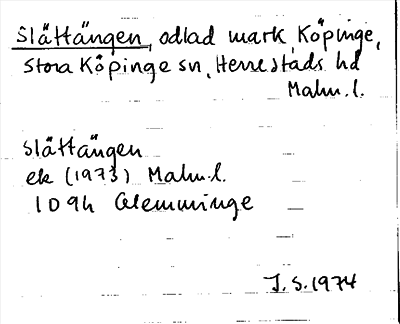 Slättängen, odlad mark, Köpinge,
Stora Köpinge sn, Herrestads hd
Malm.l.
Slättängen
ek (1973) Malm.l.
1D 9h Glemminge
J.S. 1974